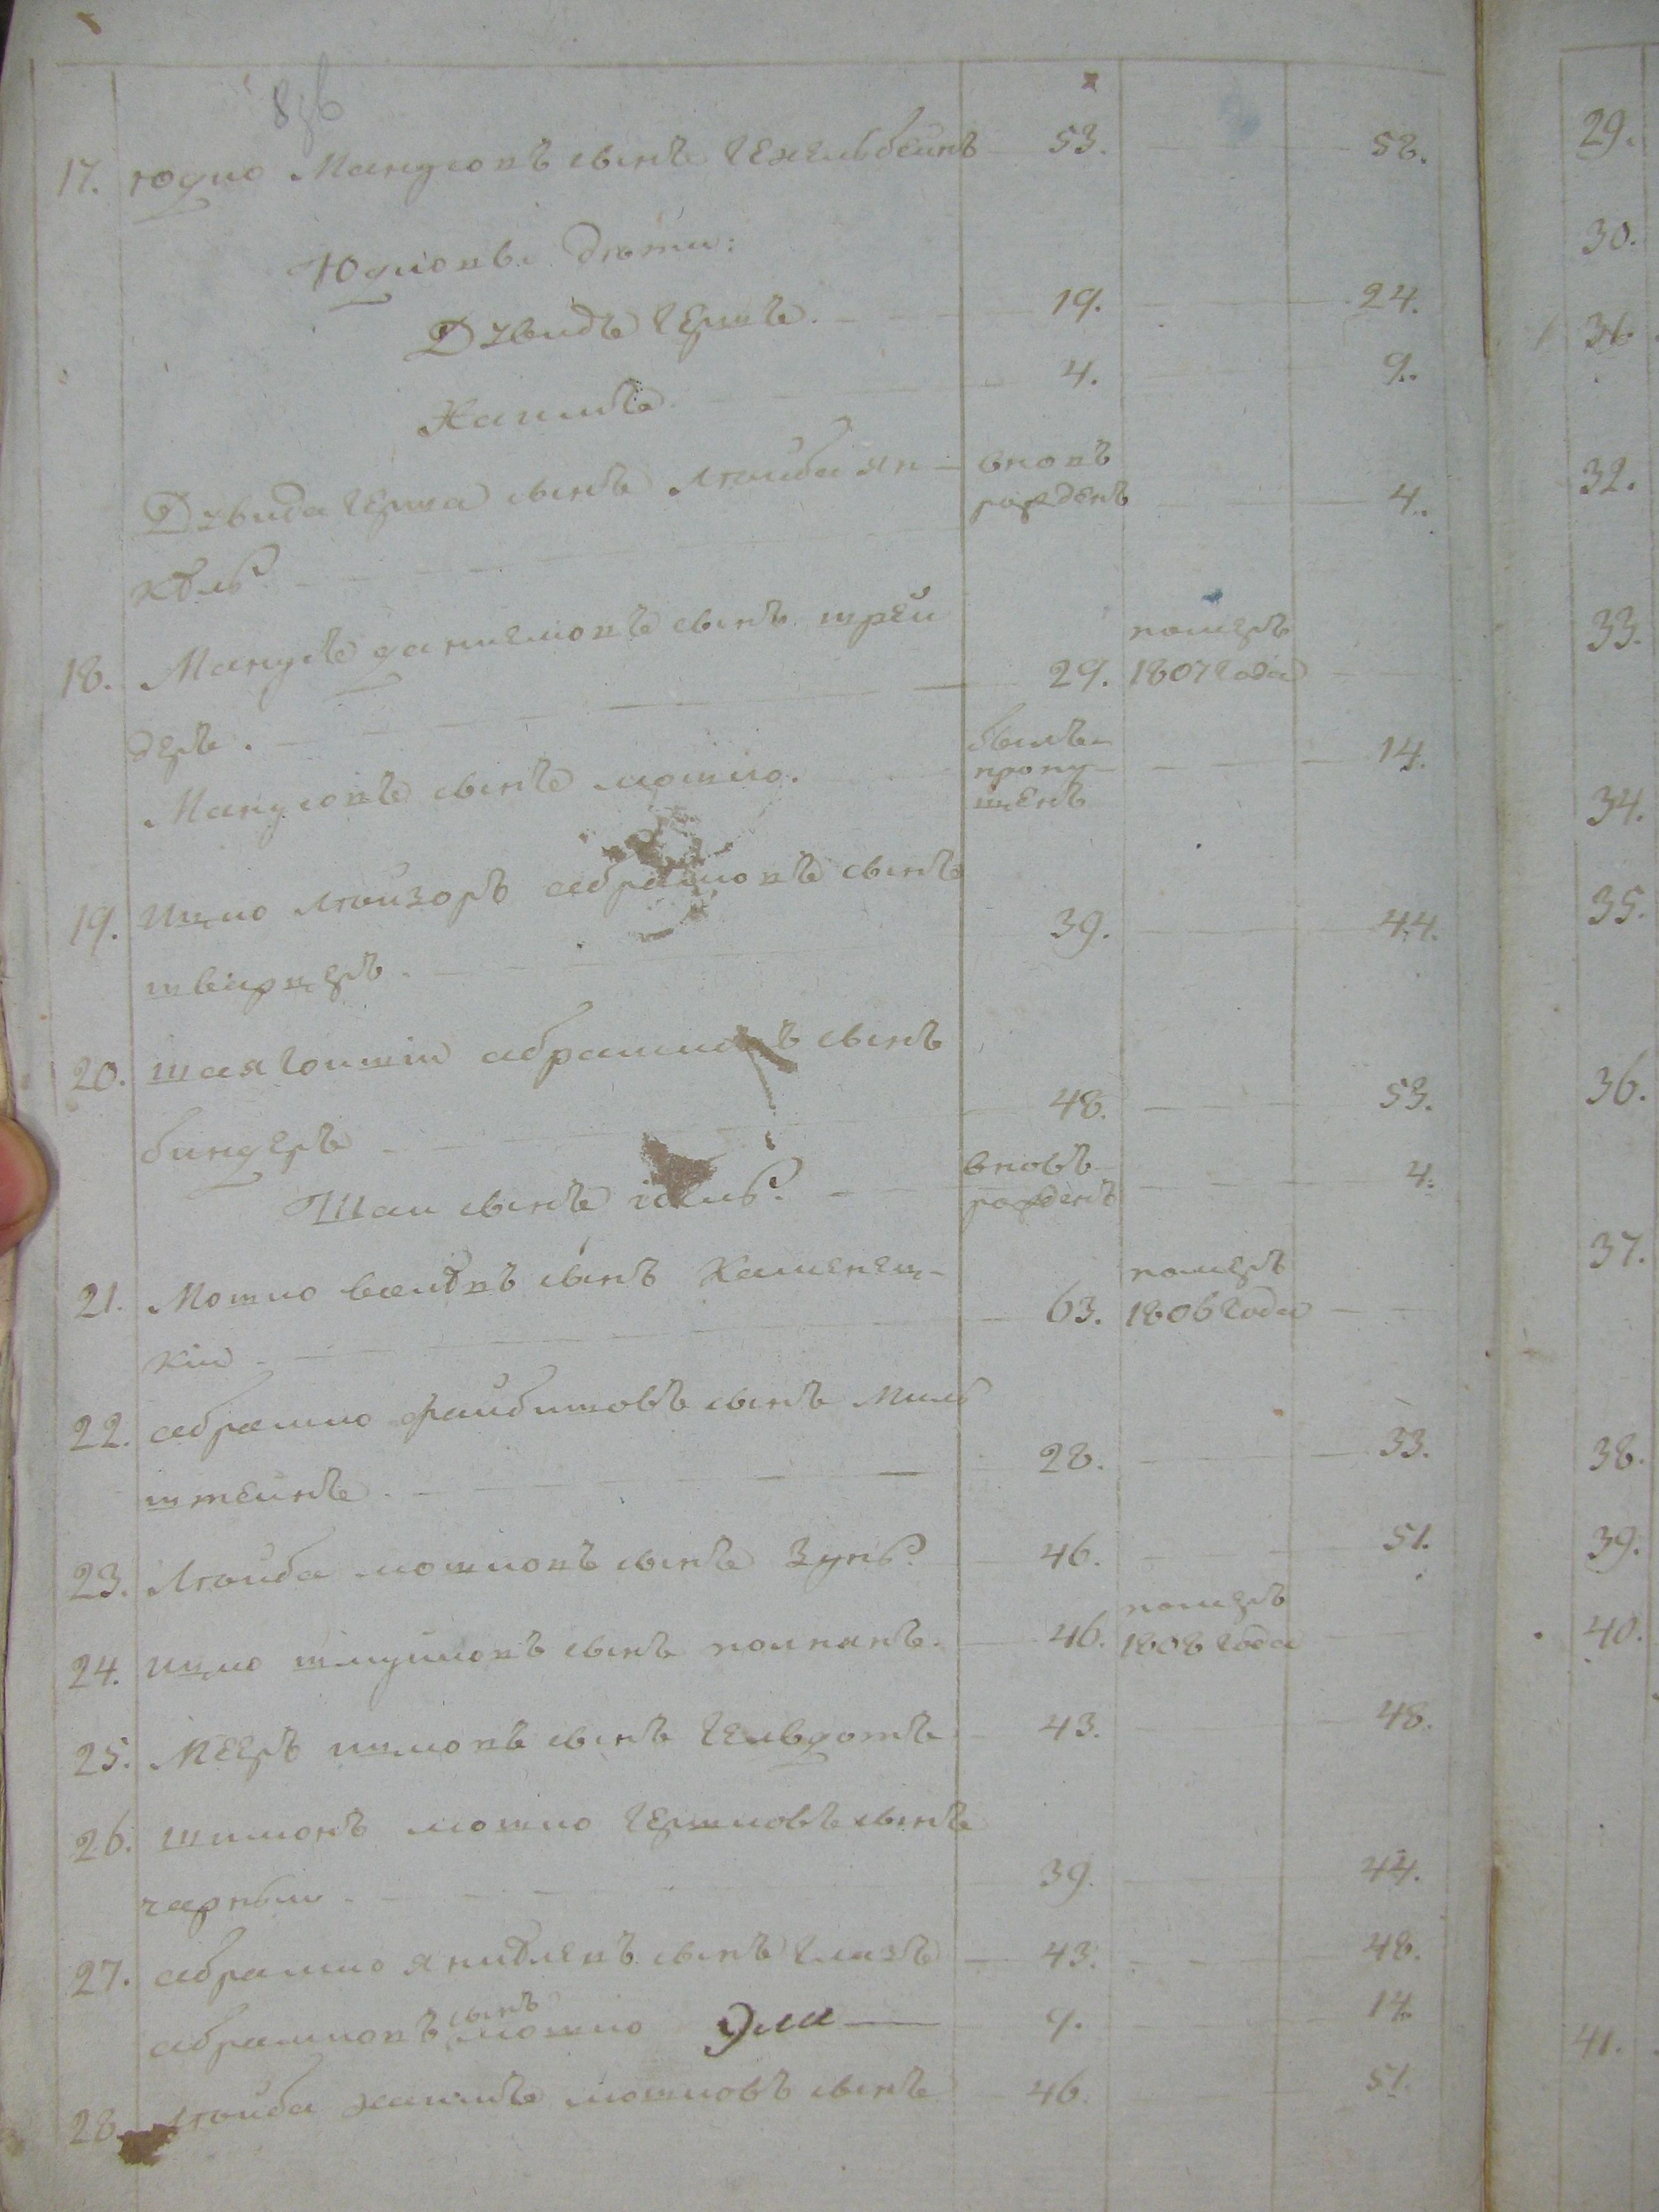 836
17. юдко Манусовъ сынъ Гехельбейнъ 53. 58.
Юдковы дѣти:
Давидъ Гершъ. 19. 24.
Хаимъ. 4. 9.
Давида Герша сынъ Лейба Ян- вновь
рожденъ 4.
кѣль
18. Манусъ данилковъ сынъ шрей померъ
29. 1807 года
деръ.
Манусовъ сынъ мошко. былъ
пропу-
щенъ 14.
19. Ицко Лейзоръ абрамковъ сынъ
шварцеръ. 39. 44.
20. шая Гошій абрамковъ сынъ
биндеръ 48. 53.
Шаи сынъ вновь
рожденъ 4.
21. Мошко сынъ Каменец- померъ
кій 63. 1806 года
22. абрамко файбишовъ сынъ Миль
штейнъ. 28. 33.
23. Лейба мошковъ сынъ 46. 51.
24. ицко шмулиовъ сынъ померъ
46. 1808 года
25. Мееръ ицковъ сынъ 43. 48.
26. шимонъ мошко Гершковъ сынъ
чарный. 39. 44.
27. абрамко сынъ 43. 48.
абрамковъ сынъ мошко Эла 9. 14.
28. Лейба хаимъ мошковъ сынъ 46. 51.
29.
30.
31.
32.
33.
34.
35.
36.
37.
38.
39.
40.
41.